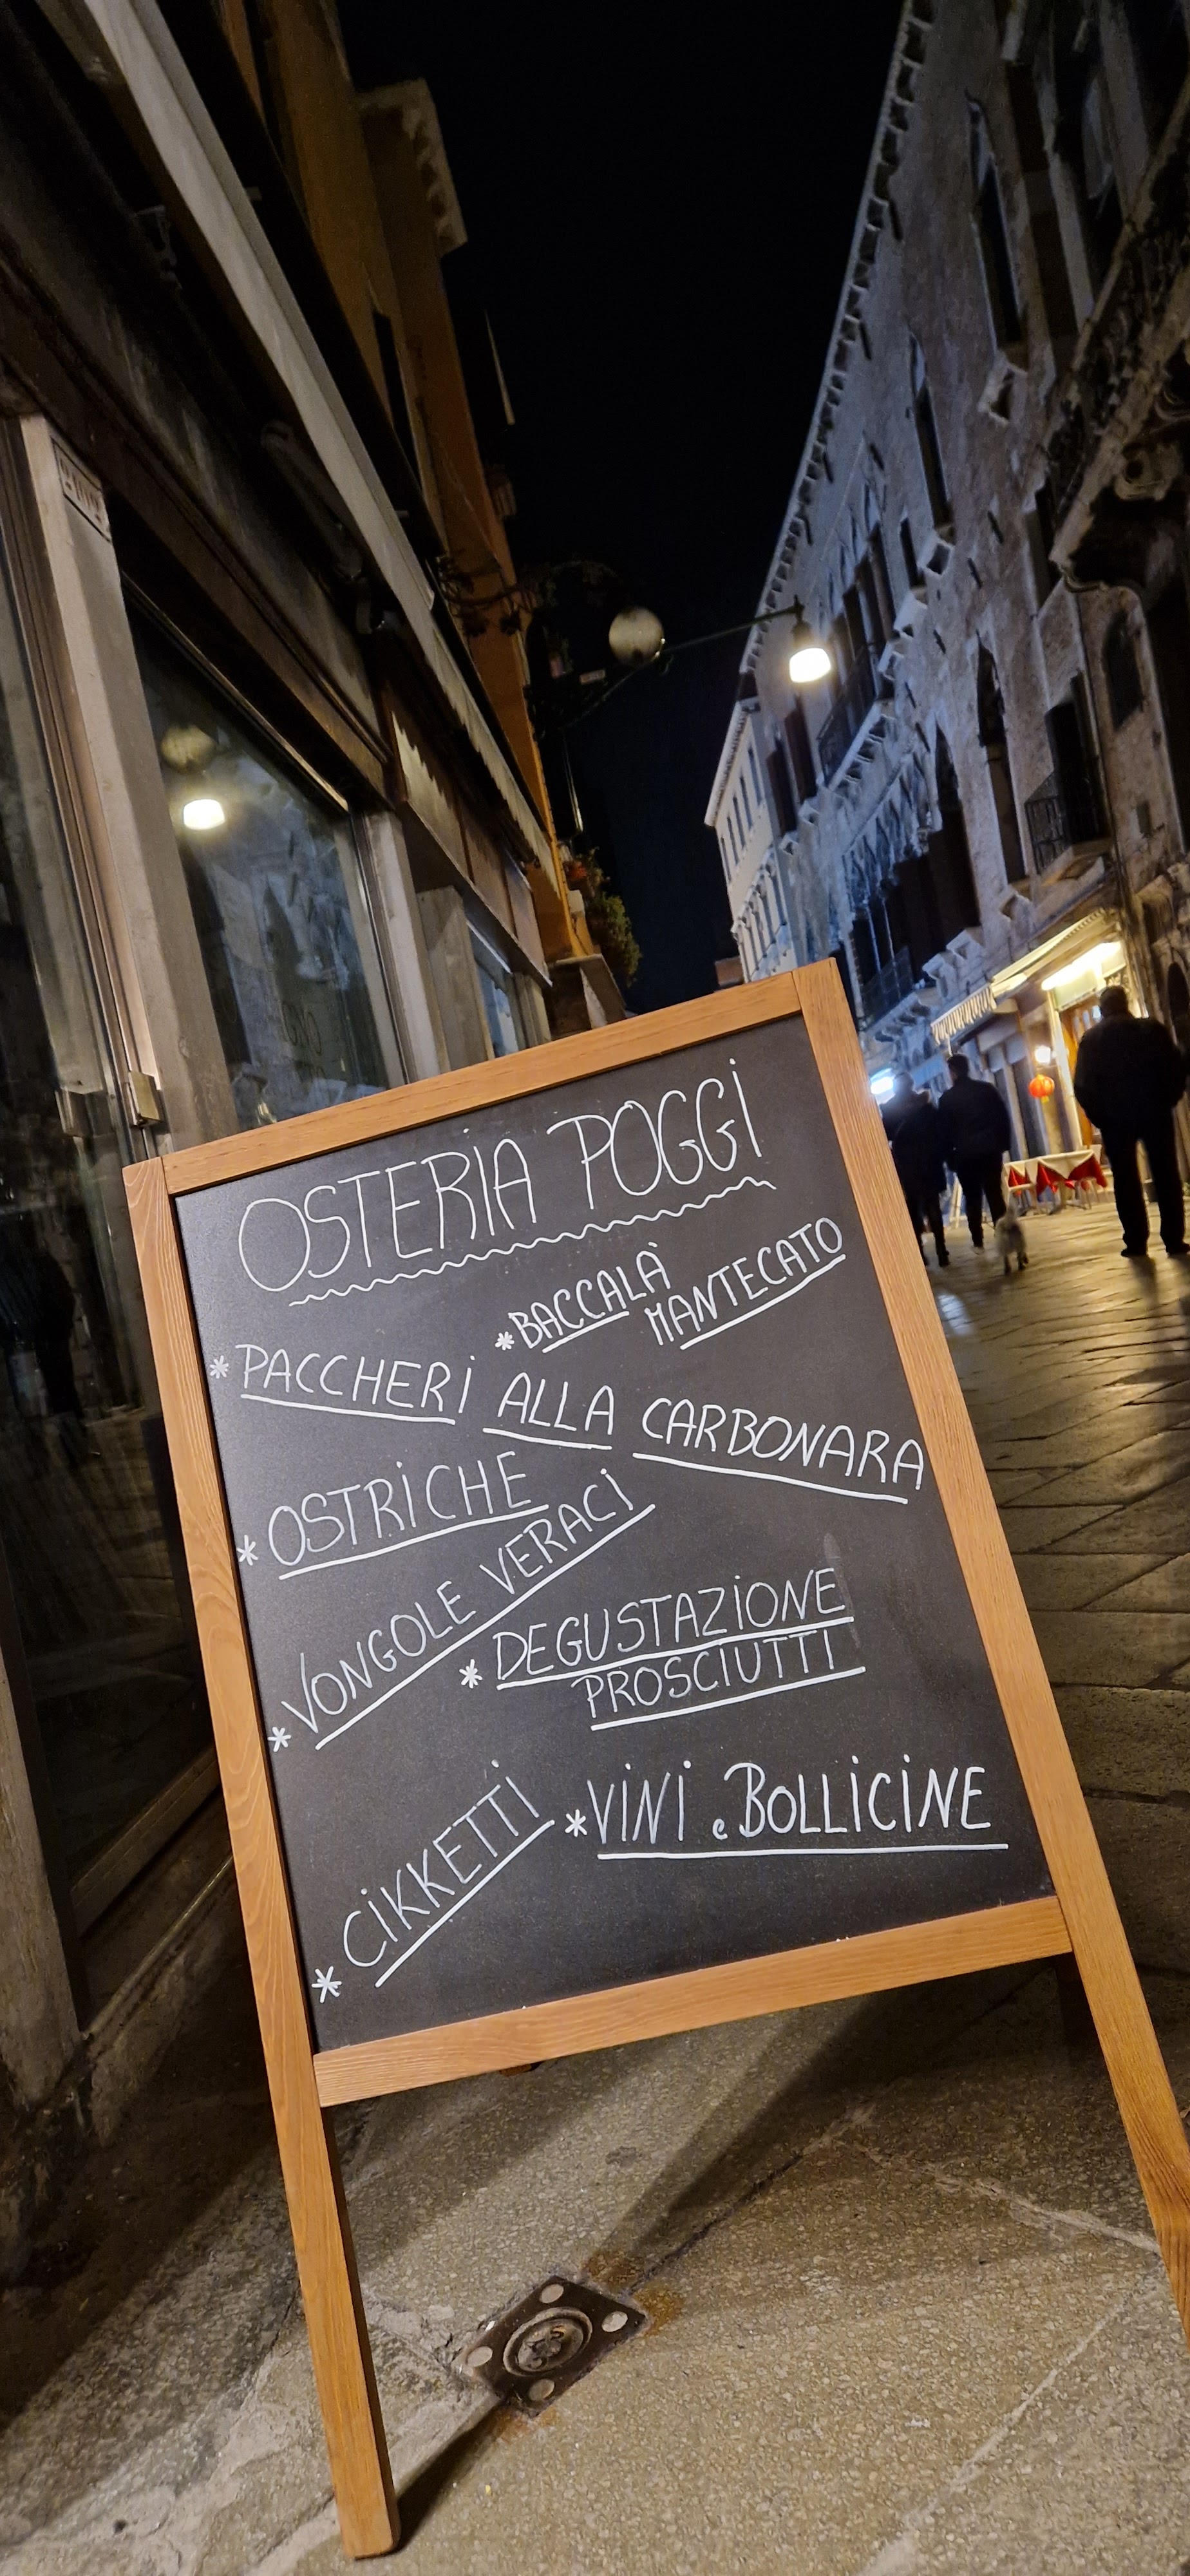 OSTERIA POGGI
*BACCALÀ
MANTECATO
*PACCHERI ALLA CARBONARA
*OSTRICHE
*VONGOLE VERACI
*DEGUSTAZIONE
PROSCIUTTI
*CIKKETTI
*VINI e BOLLICINE